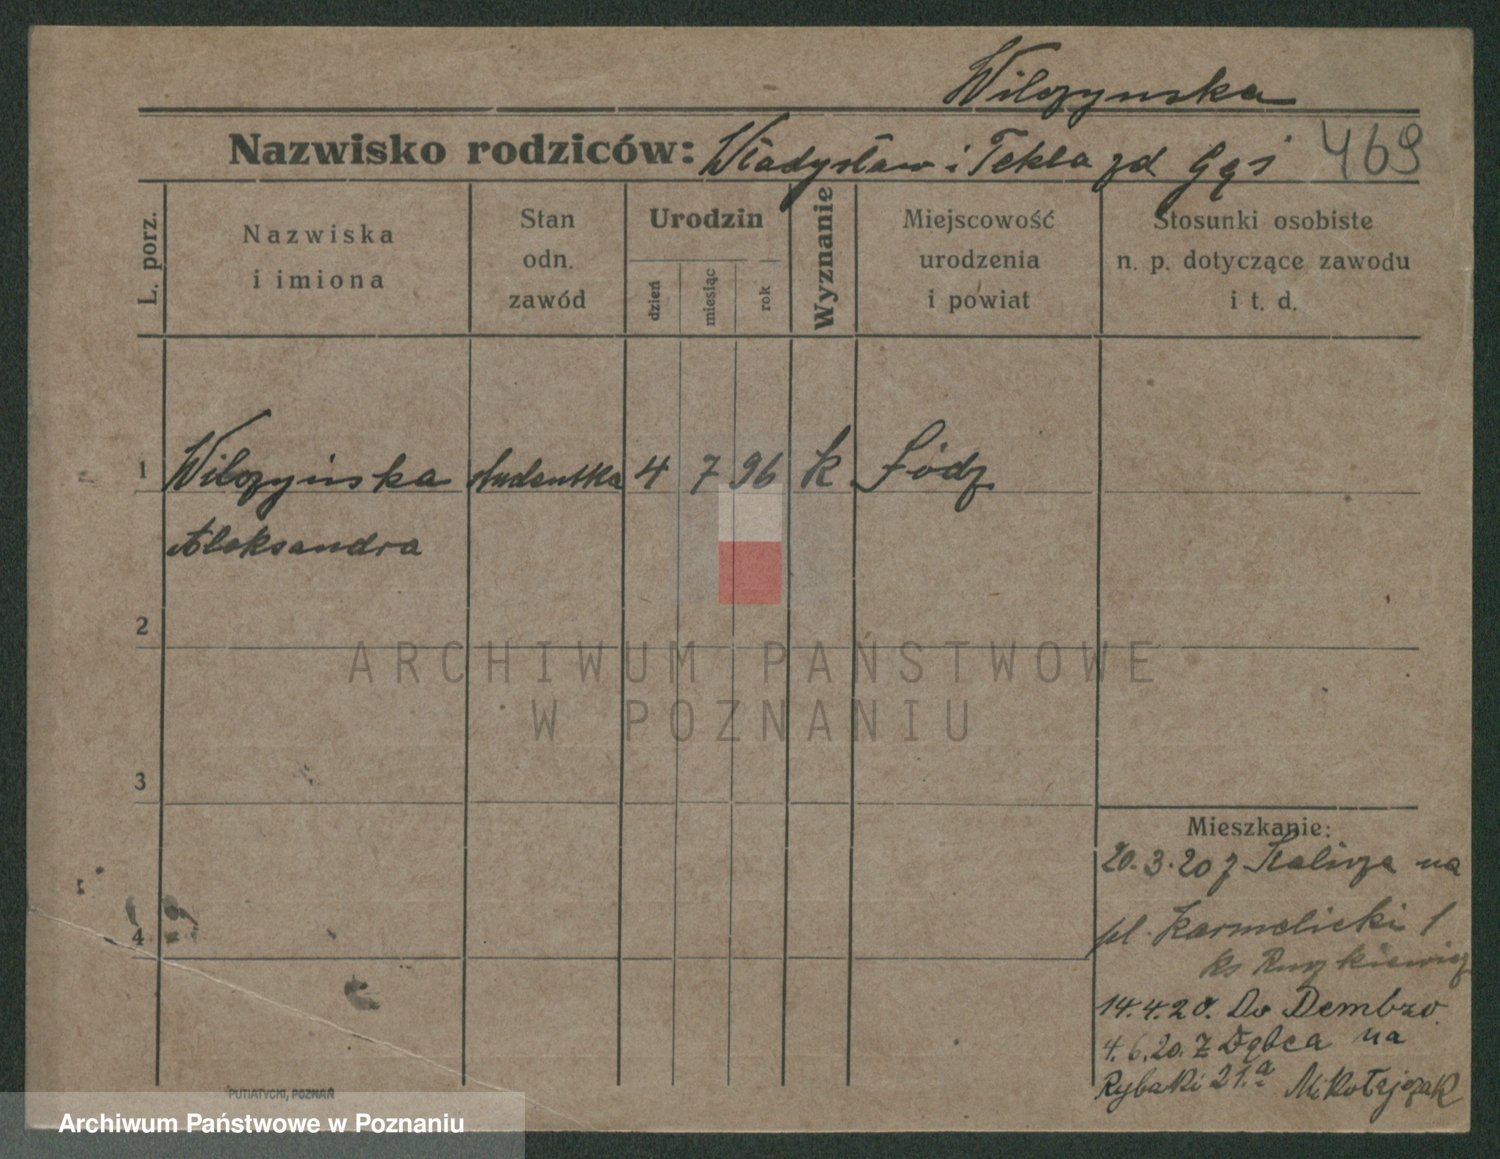 Wilczynska
Nazwisko rodziców: Władysław i Tekla zd Gąsi 469
L. porz.
Nazwiska i imiona
Stan odn. zawód
Urodzin
dzień miesiąc rok
Wyznanie
Miejscowość urodzenia i powiat
Stosunki osobiste n. p. dotyczące zawodu i t. d.
1 Wilczyńska studentka 4 7 96 k Łódz
Aleksandra
2
3
4
Mieszkanie:
20.3.20 z Kalisza na
pl. Karmelicki 1
ks
14.4.20. Do Dembzo
4.6.20. Z Dębca na
Rybaki 21.a Mikołajczak
PUTIATYCKI, POZNAŃ
ARCHIWUM PAŃSTWOWE
W POZNANIU
Archiwum Państwowe w Poznaniu